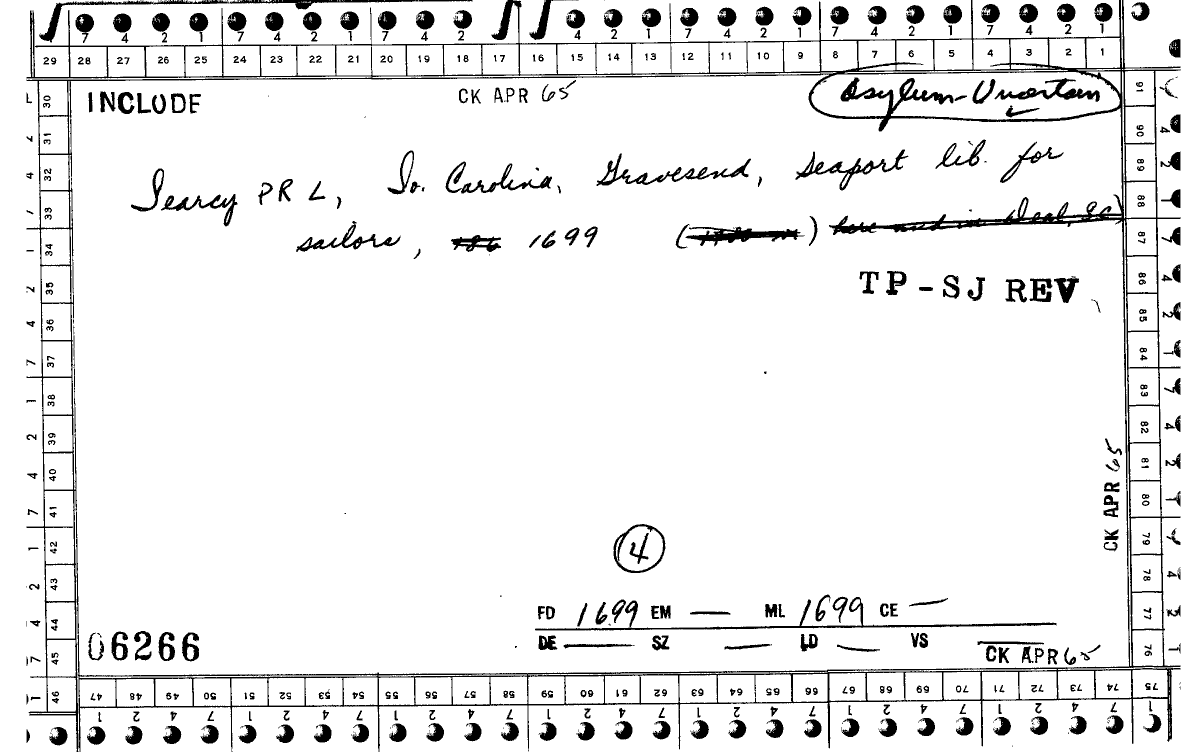 7 4 2 1 7 4 2 1 7 4 2 4 2 1 7 4 2 1 7 4 2 1 7 4 2 1
29 28 27 26 25 24 23 22 21 20 19 18 17 16 15 14 13 12 11 10 9 8 7 6 5 4 3 2 1
INCLUDE CK APR 65 Asylum-Uncertain
Searcy PR L, So. Carolina, Gravesend, Seaport lib. for
sailors, 1699
TP-SJ REV
4
FD 1699 EM — ML 1699 CE —
DE — SZ — LD — VS
06266
CK APR 65
CK APR 65
30 31 32 33 34 35 36 37 38 39 40 41 42 43 44 45 46
2 4 7 1 2 4 7 1 2 4 7 1 2 4 7 1
91 90 89 88 87 86 85 84 83 82 81 80 79 78 77 76 75
47 48 49 50 51 52 53 54 55 56 57 58 59 60 61 62 63 64 65 66 67 68 69 70 71 72 73 74
1 2 4 7 1 2 4 7 1 2 4 7 1 2 4 7 1 2 4 7 1 2 4 7 1 2 4 7 1